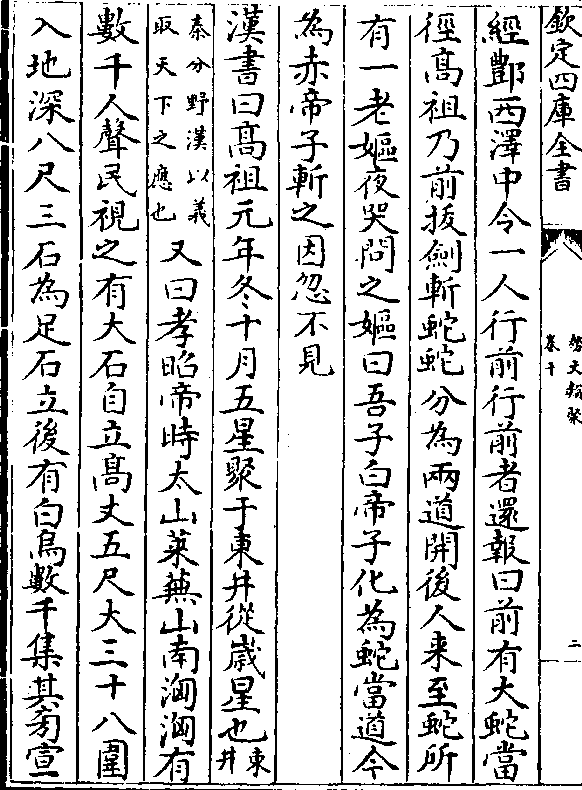 欽定四庫全書
藝文類聚
卷十
二
經酆西澤中令一人行前行前者還報曰前有大蛇當
徑高祖乃前拔劍斬蛇蛇分為兩道開後人来至蛇所
有一老嫗夜哭問之嫗曰吾子白帝子化為蛇當道今
為赤帝子斬之因忽不見
漢書曰高祖元年冬十月五星聚于東井從嵗星也東井
秦分野漢以義
取天下之應也又曰孝昭帝時太山萊蕪山南洶洶有
數千人聲民視之有大石自立高丈五尺大三十八圍
入地深八尺三石為足石立後有白烏數千集其旁宣